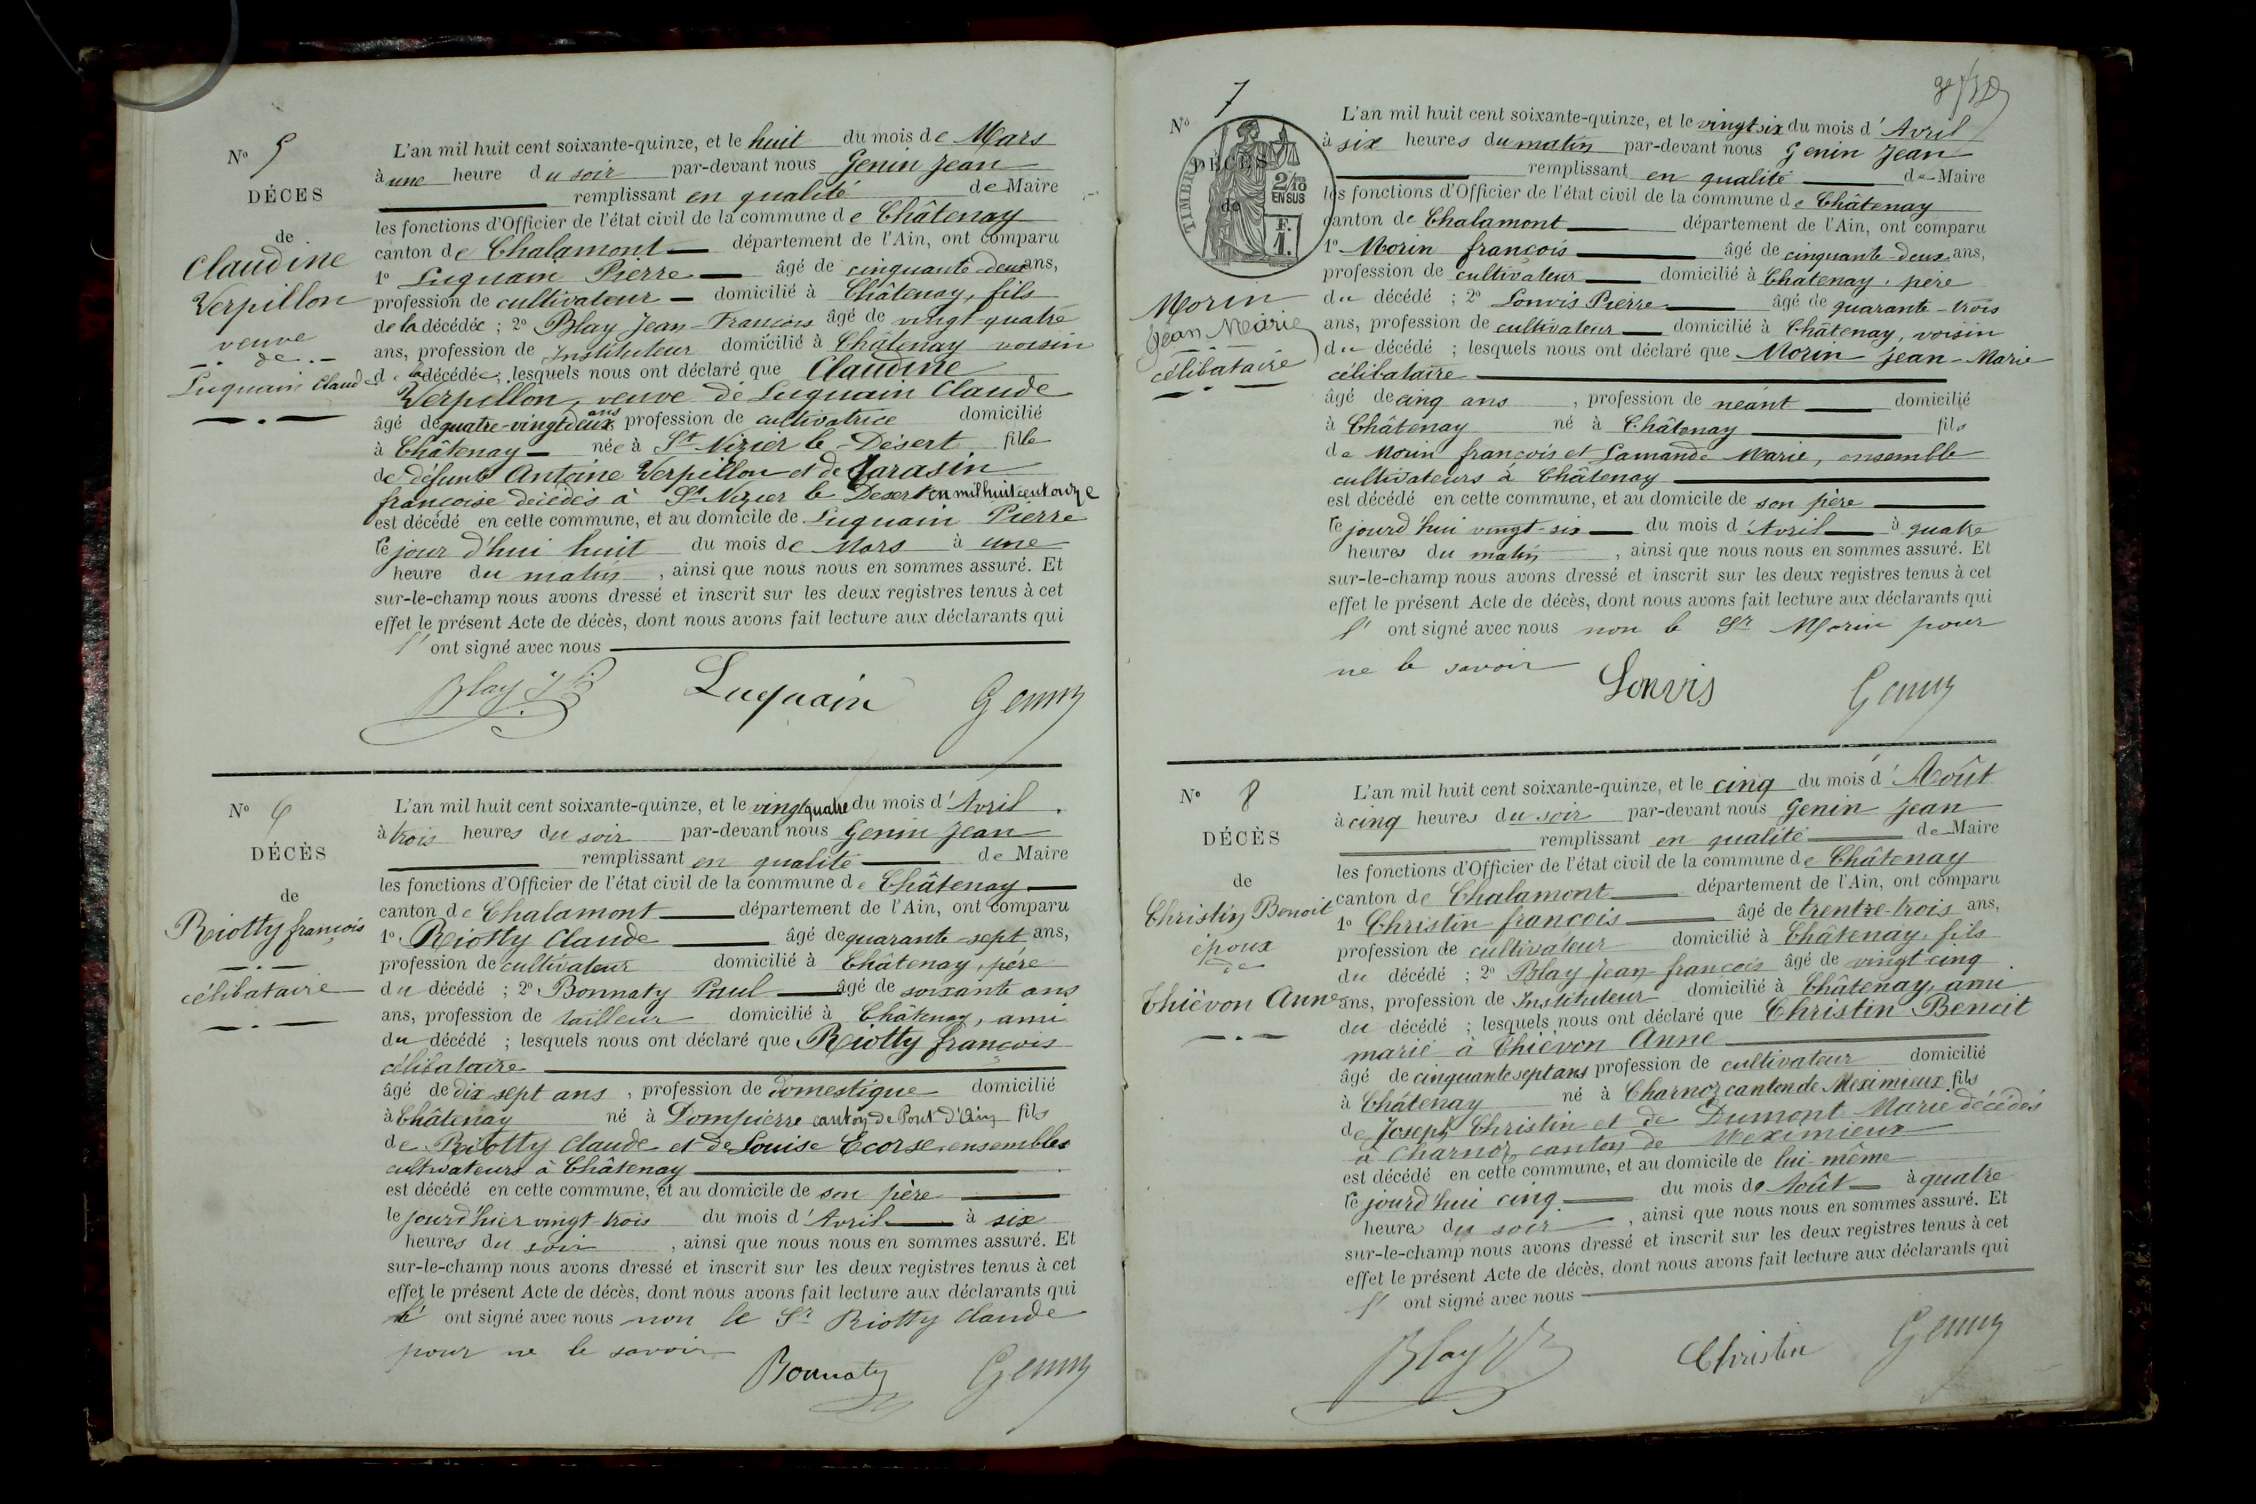 N° 5
DÉCES
de
Claudine
Verpillon
veuve
de
Luquain Claude
L'an mil huit cent soixante-quinze, et le huit du mois de Mars
à une heure du soir par-devant nous Genin Jean
remplissant en qualité de Maire
les fonctions d'Officier de l'état civil de la commune de Châtenay
canton de Chalamont département de l'Ain, ont comparu
1° Luquain Pierre âgé de cinquante-deux ans,
profession de cultivateur domicilié à Châtenay, fils
de la décédée ; 2° Blay Jean-François âgé de vingt-quatre
ans, profession de Instituteur domicilié à Châtenay voisin
de la décédée ; lesquels nous ont déclaré que Claudine
Verpillon, veuve de Luquain Claude
âgé de quatre-vingt deux ans profession de cultivatrice domicilié
à Châtenay née à St Nizier le Désert fille
de défunts Antoine Verpillon et de Sarasin
françoise décédés à St Nizier le Desert en mil huit cent onze
est décédé en cette commune, et au domicile de Luquain Pierre
le jour d'hui huit du mois de Mars à une
heure du matin, ainsi que nous nous en sommes assuré. Et
sur-le-champ nous avons dressé et inscrit sur les deux registres tenus à cet
effet le présent Acte de décès, dont nous avons fait lecture aux déclarants qui
l' ont signé avec nous
Blay J F Luquain Genin
N° 6
DÉCÈS
de
Riotty françois
célibataire
L'an mil huit cent soixante-quinze, et le vingt quatre du mois d'Avril
à trois heures du soir par-devant nous Genin Jean
remplissant en qualité de Maire
les fonctions d'Officier de l'état civil de la commune de Châtenay
canton de Chalamont département de l'Ain, ont comparu
1° Riotty Claude âgé de quarante-sept ans,
profession de cultivateur domicilié à Châtenay, père
du décédé ; 2° Bonnaty Paul âgé de soixante ans
ans, profession de tailleur domicilié à Châtenay, ami
du décédé ; lesquels nous ont déclaré que Riotty françois
célibataire
âgé de dix sept ans, profession de domestique domicilié
à Châtenay né à Dompierre canton de Pont d'Ain fils
de Riotty Claude et de Louise Ecorse ensembles
cultivateurs à Châtenay
est décédé en cette commune, et au domicile de son père
le jour d'hier vingt-trois du mois d'Avril à six
heures du soir, ainsi que nous nous en sommes assuré. Et
sur-le-champ nous avons dressé et inscrit sur les deux registres tenus à cet
effet le présent Acte de décès, dont nous avons fait lecture aux déclarants qui
l' ont signé avec nous non le Sr Riotty Claude
pour ne le savoir
Bonnaty Genin
N° 7
DÉCÈS
de
TIMBRE
2/10
EN SUS
F.
1.
Morin
Jean Marie
célibataire
L'an mil huit cent soixante-quinze, et le vingt six du mois d'Avril
à six heures du matin par-devant nous Genin Jean
remplissant en qualité de Maire
les fonctions d'Officier de l'état civil de la commune de Châtenay
canton de Chalamont département de l'Ain, ont comparu
1° Morin françois âgé de cinquante-deux ans,
profession de cultivateur domicilié à Châtenay, père
du décédé ; 2° Lonvis Pierre âgé de quarante-trois
ans, profession de cultivateur domicilié à Châtenay, voisin
du décédé ; lesquels nous ont déclaré que Morin Jean-Marie
célibataire
âgé de cinq ans, profession de néant domicilié
à Châtenay né à Châtenay fils
de Morin françois et Lamande Marie, ensemble
cultivateurs à Châtenay
est décédé en cette commune, et au domicile de son père
le jourd'hui vingt-six du mois d'Avril à quatre
heures du matin, ainsi que nous nous en sommes assuré. Et
sur-le-champ nous avons dressé et inscrit sur les deux registres tenus à cet
effet le présent Acte de décès, dont nous avons fait lecture aux déclarants qui
l' ont signé avec nous non le Sr Morin pour
ne le savoir
Lonvis Genin
N° 8
DÉCÈS
de
Christin Benoit
époux
de
Thiévon Anne
L'an mil huit cent soixante-quinze, et le cinq du mois d'Août
à cinq heures du soir par-devant nous Genin Jean
remplissant en qualité de Maire
les fonctions d'Officier de l'état civil de la commune de Châtenay
canton de Chalamont département de l'Ain, ont comparu
1° Christin françois âgé de trentre-trois ans,
profession de cultivateur domicilié à Châtenay, fils
du décédé ; 2° Blay Jean françois âgé de vingt cinq
ans, profession de Instituteur domicilié à Châtenay, ami
du décédé ; lesquels nous ont déclaré que Christin Benoit
marié à Thiévon Anne
âgé de cinquante sept ans profession de cultivateur domicilié
à Châtenay né à Charnoz canton de Meximieux fils
de Joseph Christin et de Dumont Marie décédés
à Charnoz canton de Meximieux
est décédé en cette commune, et au domicile de lui-même
le jourd'hui cinq du mois de Août à quatre
heures du soir, ainsi que nous nous en sommes assuré. Et
sur-le-champ nous avons dressé et inscrit sur les deux registres tenus à cet
effet le présent Acte de décès, dont nous avons fait lecture aux déclarants qui
l' ont signé avec nous
Blay Christin Genin